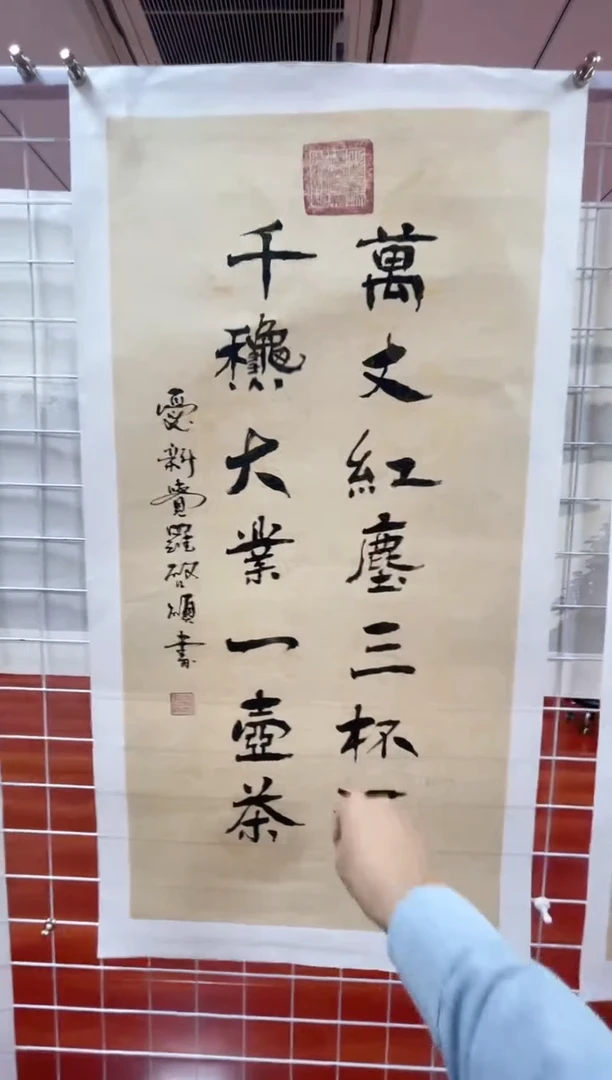 萬丈紅塵三杯
千龝大業一壺茶
愛新覺羅啟頌書